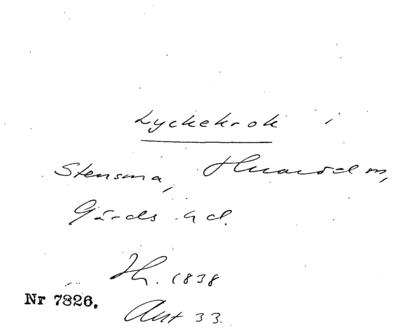 Lyckekrok i
Stensma, Huaröd sn,
Gärds hd.
Hr. 1838
Nr 7826.
Ant 33.